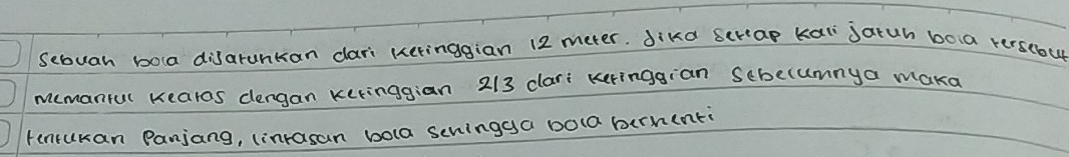 Sebuah bola dijatuhkan dari ketinggian 12 meter. Jika setiap kali jatuh bola tersebut
memantul keatas dengan ketinggian 2/3 dari ketinggian sebelumnya maka
tentukan Panjang, lintasan bola sehingga bola berhenti